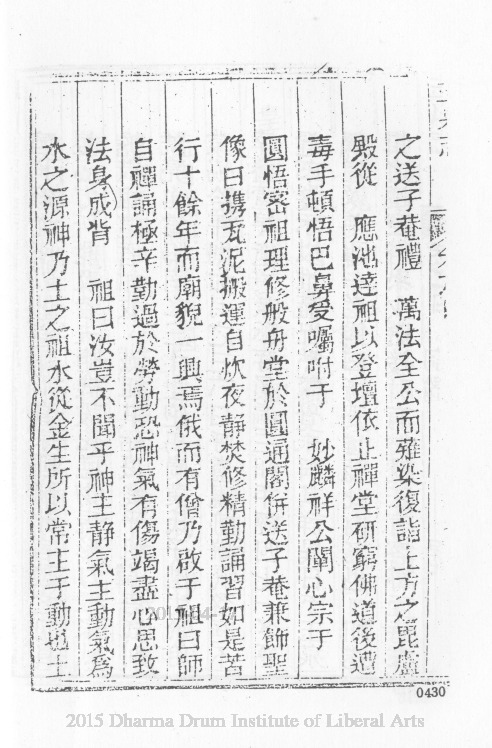 之送子菴禮　萬法全公而薙染復詣上方之毘盧
殿從　應池達祖以登壇依止禪堂研窮佛道後遭
毒手頓悟巴鼻受囑咐于　妙麟祥公闡心宗于
圓悟密祖理修般舟堂於圓通閣併送子菴兼飾聖
像日携瓦泥搬運自炊夜靜焚修精勤誦習如是苦
行十餘年而廟貌一興焉俄而有僧乃啟于祖曰師
自禪誦極辛勤過於勞動恐神氣有傷竭盡心思致
法身成背　祖曰汝豈不聞乎神主靜氣主動氣爲
水之源神乃土之祖水從金生所以常主于動也土
0430
2015 Dharma Drum Institute of Liberal Arts